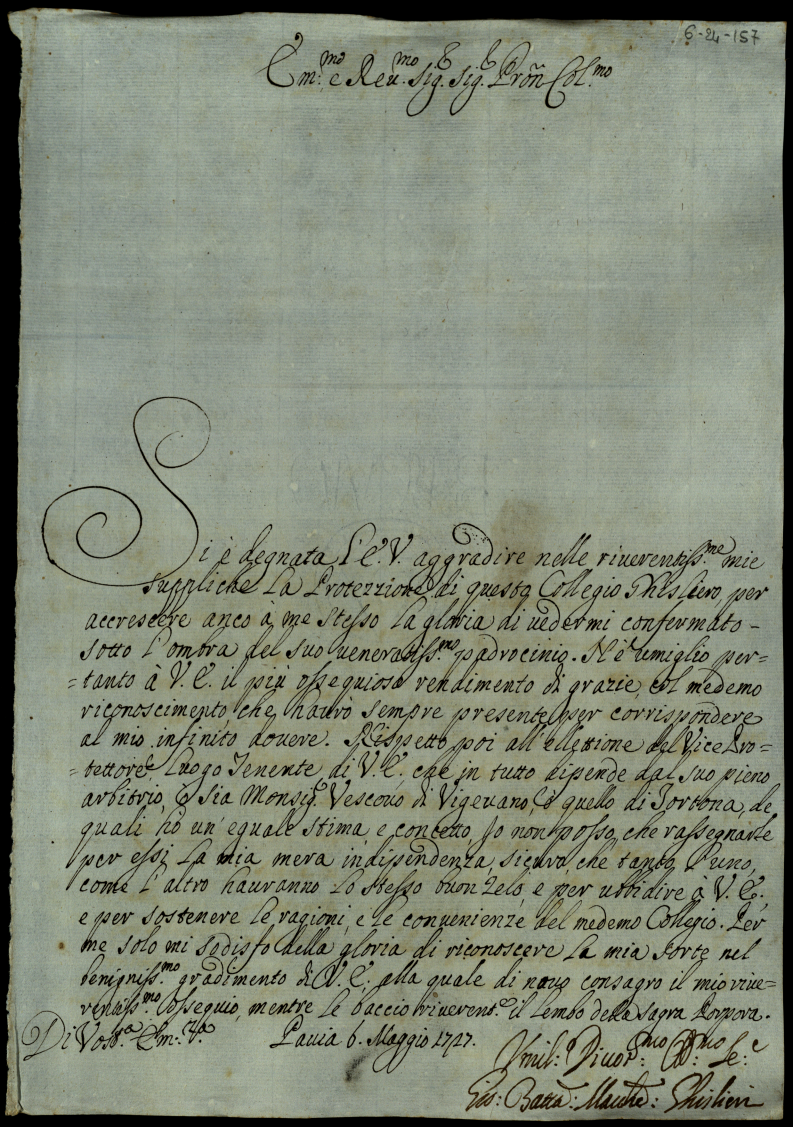 6-24-157
Em:mo e Reu:mo Sig:r Sig:r Prõn Col:mo
Si è degnata l'E. V. aggradire nelle riuerentiss:me mie
suppliche la Protezzione di questo Collegio Ghisliero, per
accrescere anco à me stesso la gloria di uedermi confermato
sotto l'ombra del suo veneratiss:mo padrocinio. N'è umiglio per=
=tanto à V. E. il più ossequioso rendimento di grazie, col medemo
riconoscimento, che haurò sempre presente, per corrispondere
al mio infinito douere. Rispetto poi all'ellettione del Vice Pro=
=tettore, Luogo Tenente di V. E. che in tutto dipende dal suo pieno
arbitrio, ò sia Monsig:r Vescouo di Vigeuano, ò quello di Tortona, de
quali hò un'eguale stima, e concetto, Io non posso, che rassegnarle
per essi la mia mera indipendenza, sicuro, che tanto l'uno,
come l'altro hauranno lo stesso buon zelo, e per ubbidire à V. E.
e per sostenere le ragioni, e le conuenienze del medemo Collegio. Per
me solo mi sodisfo della gloria di riconoscere la mia sorte nel
benigniss:mo gradimento di V. E. alla quale di nouo consagro il mio riue=
rentiss:mo Ossequio, mentre le baccio riuerent:e il lembo della sagra Porpora.
Di Vost:ra Em:za Pauia 6. Maggio 1727.
Vmil: Diuot:mo Ob:mo Se:e
Gio: Batta: Marche: Ghislieri